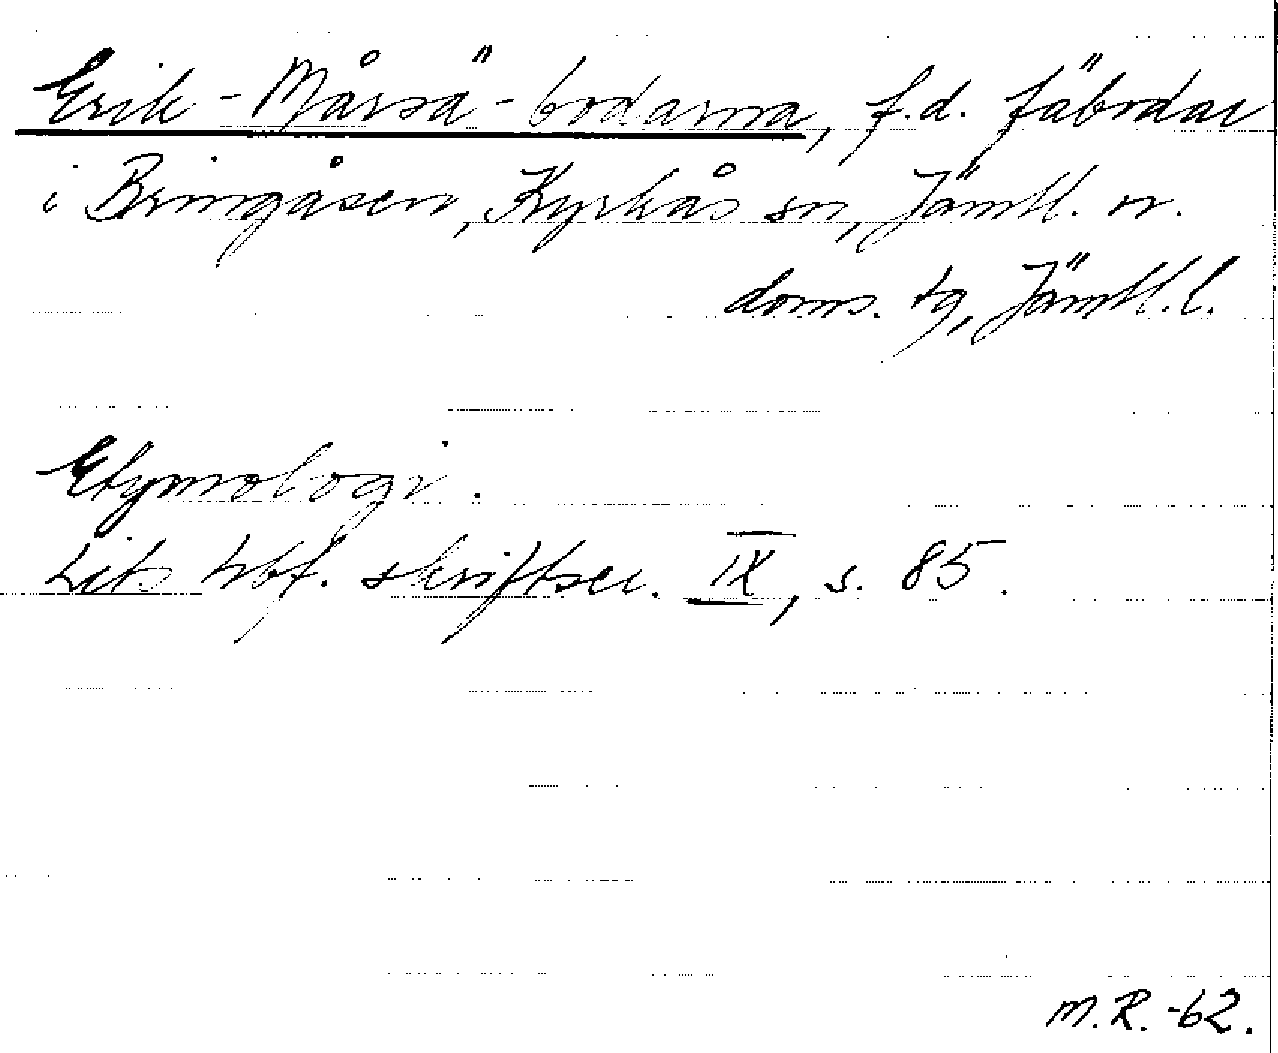 Erik-Mårsä-bodarna, f.d. fäbodar
i Bringåsen, Kyrkås sn, Jämtl. n.
doms. tg, Jämtl. l.
Etymologi.
Lits hbf. skriftser. IX, s. 85.
M.R. -62.